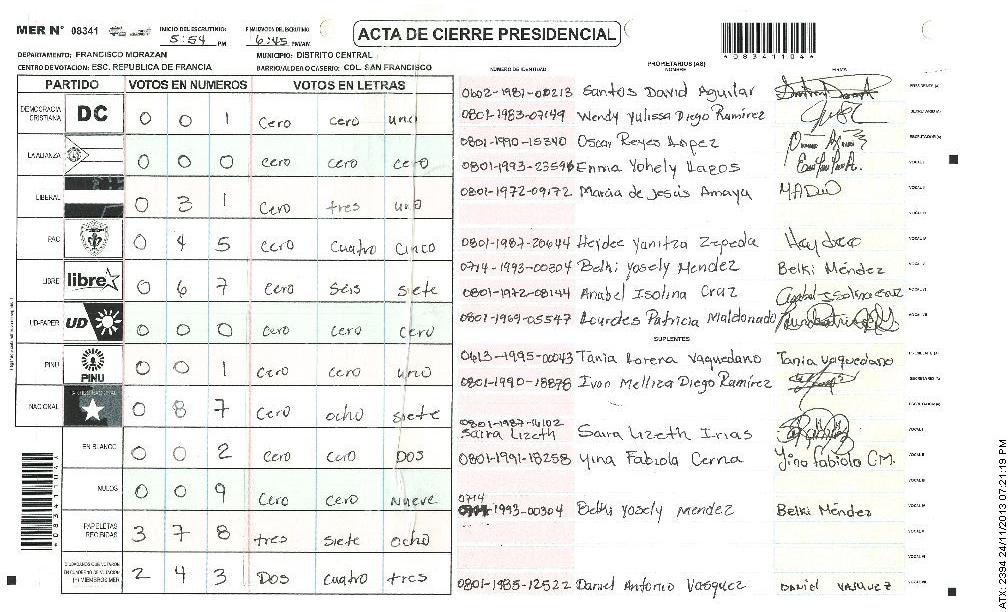 MER N° 08341
INICIO DEL ESCRUTINIO:
5:54 PM
FINALIZACION DEL ESCRUTINIO
6:45 PM/AM
ACTA DE CIERRE PRESIDENCIAL
*08341104*
DEPARTAMENTO: FRANCISCO MORAZAN
MUNICIPIO: DISTRITO CENTRAL
CENTRO DE VOTACION: ESC. REPUBLICA DE FRANCIA
BARRIO/ALDEA O CASERIO: COL. SAN FRANCISCO
PARTIDO VOTOS EN NUMEROS VOTOS EN LETRAS
DEMOCRACIA CRISTIANA DC 0 0 1 Cero cero uno
LA ALIANZA 0 0 0 cero cero cero
LIBERAL 0 3 1 Cero tres uno
PAC 0 4 5 Cero Cuatro Cinco
LIBRE libre 0 6 7 Cero Seis siete
UD-FAPER UD 0 0 0 cero cero cero
PINU PINU 0 0 1 Cero cero uno
NACIONAL 0 8 7 Cero ocho siete
EN BLANCO 0 0 2 Cero cero DOS
NULOS 0 0 9 Cero Cero Nueve
PAPELETAS RECIBIDAS 3 7 8 tres siete ocho
CIUDADANOS QUE VOTARON EN CUADERNO DE VOTACION (+) MIEMBROS MER 2 4 3 DOS cuatro tres
NUMERO DE IDENTIDAD PROPIETARIOS (AS) NOMBRE FIRMA
0602-1981-00213 Santos David Aguilar
0801-1983-07149 Wendy Yulissa Diego Ramírez
0801-1990-15340 Oscar Reyes Lopez
0801-1993-23596 Emma Yohely Lagos
0801-1972-09172 Marcia de Jesús Amaya
0801-1987-20644 Heydee Yanitza Zepeda
0714-1993-00304 Belki Yosely Mendez Belki Méndez
0801-1972-08144 Anabel Isolina Cruz Anabel Isolina Cruz
0801-1969-05547 Lourdes Patricia Maldonado
SUPLENTES
0613-1995-00043 Tania Lorena Vaquedano Tania Vaquedano
0801-1990-18878 Ivon Melliza Diego Ramírez
0801-1987-16102
Saira Lizeth Saira Lizeth Irias
0801-1991-18258 Yina Fabiola Cerna Yina Fabiola C.M.
0714
-1993-00304 Belki Yosely Mendez Belki Méndez
0801-1985-12522 Daniel Antonio Vasquez DANIEL VASQUEZ
*08341104*
ATX: 2394 24/11/2013 07:21:19 PM